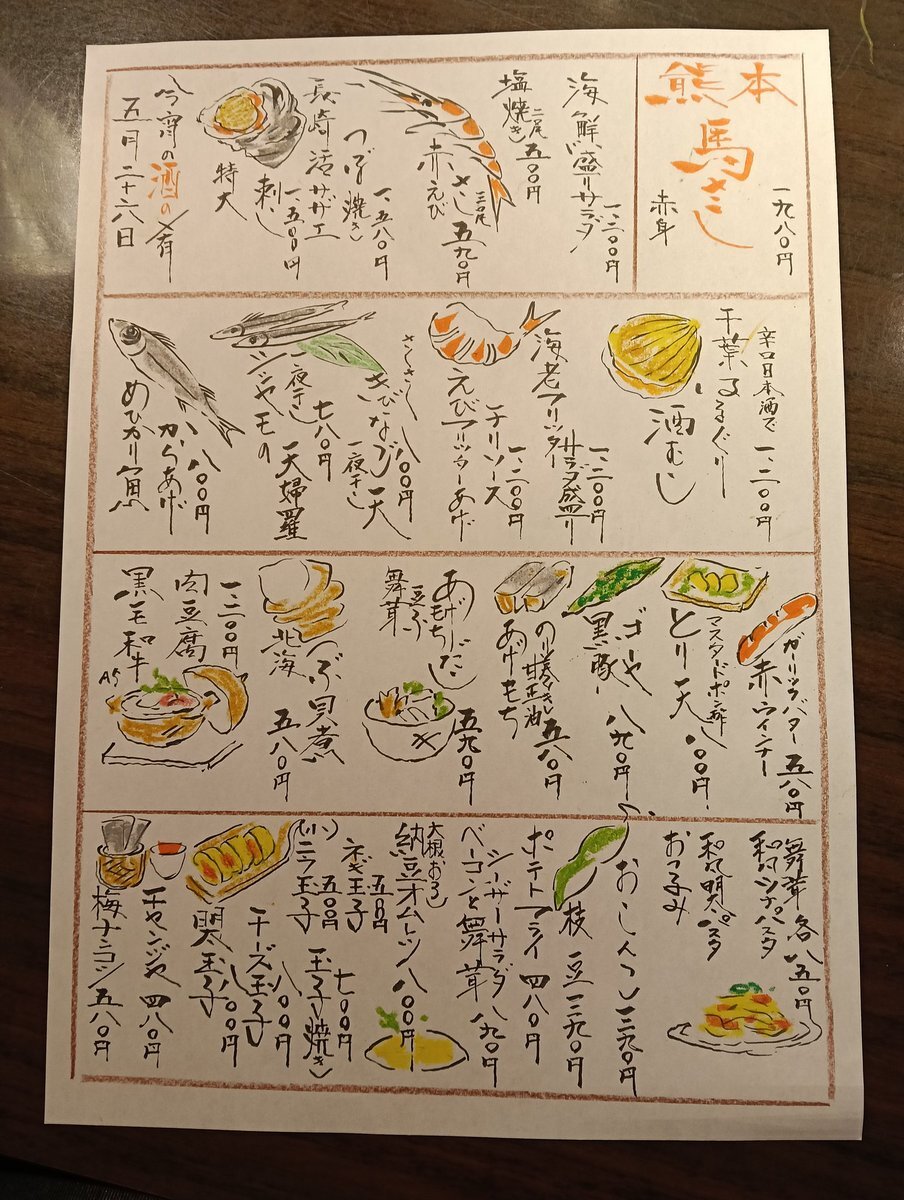 熊本
馬さし
赤身
一九八〇円
海鮮盛りサラダ
一、二〇〇円
塩焼き
二尾五〇〇円
赤えび
さし
二尾
五九〇円
長崎活サザエ
つぼ焼き
一、五八〇円
刺し
一、五〇〇円
特大
今宵の酒の肴
五月二十六日
辛口日本酒で
千葉はまぐり
酒むし
一、二〇〇円
海老フリッター
サラダ盛り
一、二〇〇円
えびフリッターあげ
チリソース
一、二〇〇円
きびなご
一夜干し
天
八〇〇円
シシャモの
一夜干し
天婦羅
七八〇円
めひかり
からあげ
八〇〇円
ガーリックバター
赤ウインナー
五八〇円
マスタードポン酢
とり天
八〇〇円
ゴーヤ
黒豚
八九〇円
のり巻き
甘正油
あげもち
五八〇円
あげだし
もち
豆ふ
舞茸
五九〇円
北海つぶ貝煮
五八〇円
黒毛和牛
A5
肉豆腐
一、二〇〇円
舞茸
各八五〇円
和風ツナパスタ
和風明太パスタ
おつまみ
おしんこ
三九〇円
枝豆
三九〇円
ポテトフライ
四八〇円
シーザーサラダ
ベーコンと舞茸
八九〇円
大根おろし
納豆オムレツ
八〇〇円
ネギ玉子
五五〇円
(小)
ニラ玉子
五〇〇円
玉子焼き
七〇〇円
チーズ玉子
八〇〇円
明太玉子
八〇〇円
チャンジャ
四八〇円
梅ナンコツ
五八〇円